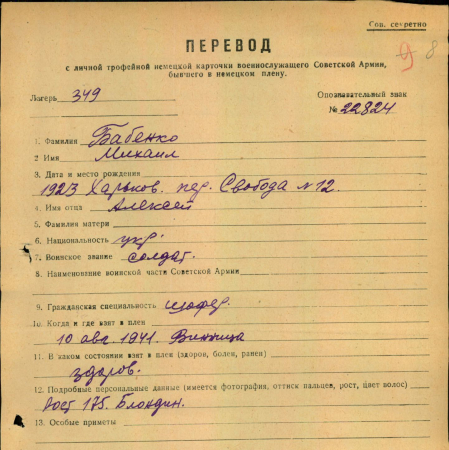 Сов. секретно
8
ПЕРЕВОД
с личной трофейной немецкой карточки военнослужащего Советской Армии,
бывшего в немецком плену.
Лагерь 349
Опознавательный знак
№ 22824
1. Фамилия Бабенко
2 Имя Михаил
3. Дата и место рождения
1923 Харьков. пер. Свобода N 12.
4. Имя отца Алексей
5. Фамилия матери
6. Национальность укр.
7. Воинское звание солдат.
8. Наименование воинской части Советской Армии
9. Гражданская специальность шофер.
10. Когда и где взят в плен
10 авг. 1941. Винница
11. В каком состоянии взят в плен (здоров, болен, ранен)
здоров.
12. Подробные персональные данные (имеется фотография, оттиск пальцев, рост, цвет волос)
Рост 175. Блондин.
13. Особые приметы